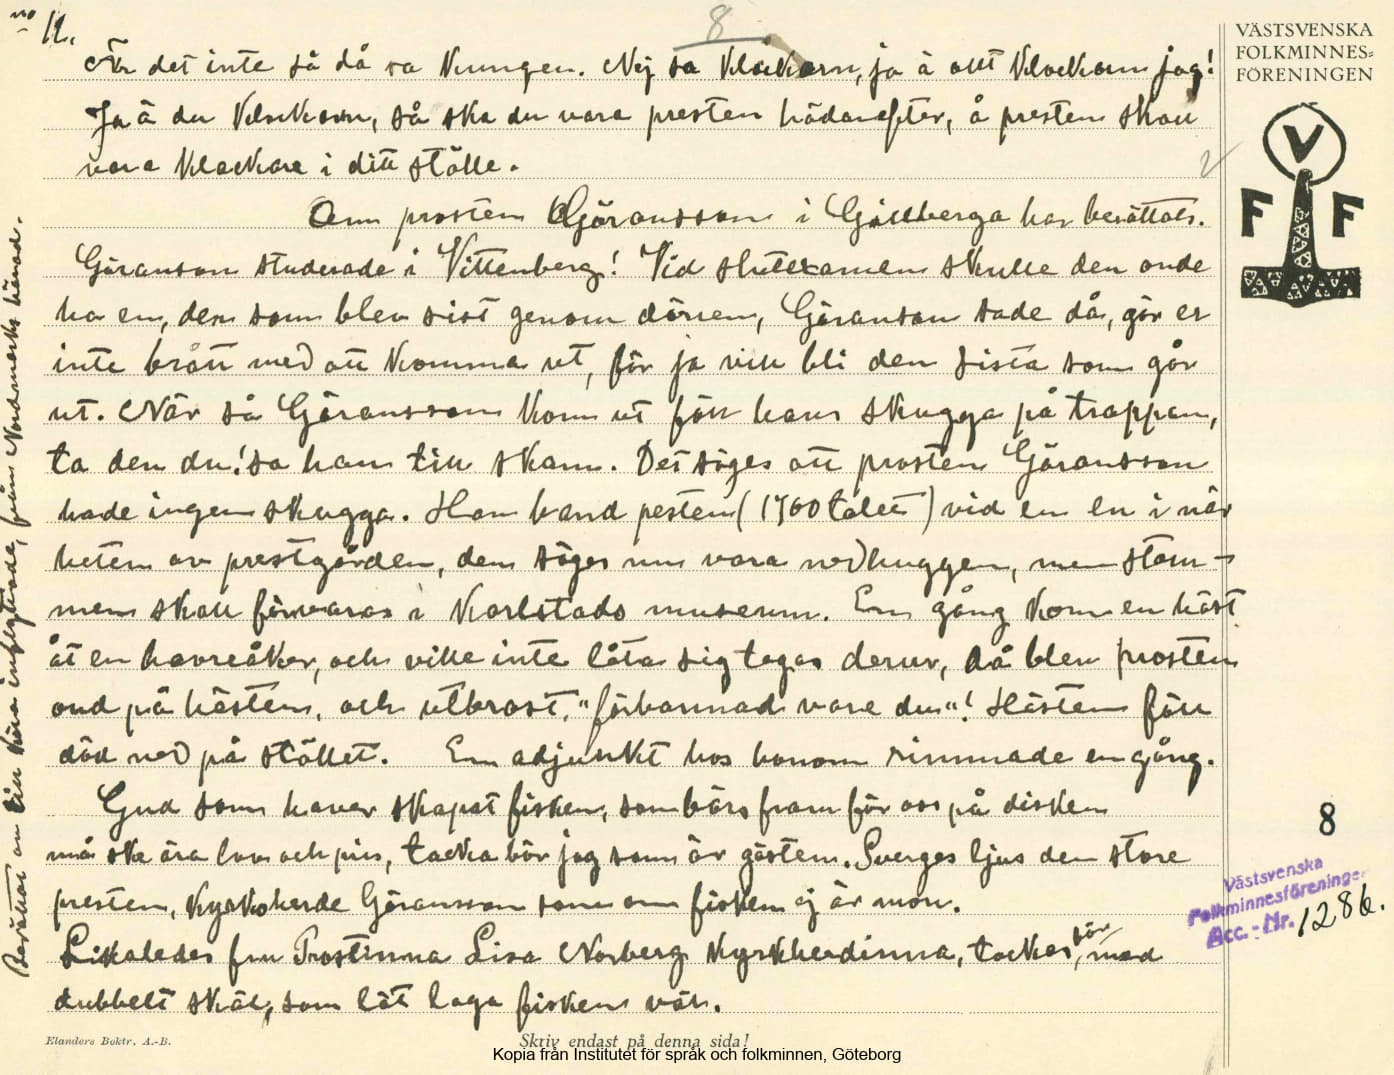 no 12.
8
VÄSTSVENSKA
FOLKMINNES-
FÖRENINGEN
Är det inte så då sa Kungen. Nej sa Klockarn, ja ä att Klockarn jag!
Ja ä du Klockarn, så ska du vara presten hädanefter, å presten skall
vara Klockare i ditt ställe.
2
V
F F
Om prosten Göransson i Gillberga har berättats.
Göranson studerade i Vittenberg! Vid slutexamen skulle den onde
ha en, den som blev sist genom dörren, Göranson sade då, gör er
inte brått med att komma ut, för ja vill bli den sista som går
ut. När så Göransson kom ut föll hans skugga på trappan,
ta den du! sa han till skam. Det säges att prosten Göransson
hade ingen skugga. Han band pesten (1760 talet) vid en en i när
heten av prestgården, den säges nu vara nedhuggen, men stam-
men skall förvaras i Karlstads museum. En gång kom en häst
åt en havreåker, och ville inte låta sig tagas derur, då blev prosten
ond på hästen, och utbrast, "förbannad vare du"! Hästen föll
död ned på stället. En adjunkt hos honom rimmade en gång.
Gud som haver skapat fisken, som bärs fram för oss på disken
må ske ära lov och pris, tacka bör jag som är gästen. Sverges ljus den store
presten, Kyrkoherde Göransson som om fisken ej är mån.
Likaledes fru Prostinna Lisa Norberg Kyrkherdinna, tackas bör, med
dubbelt skäl, som låt laga fisken väl.
Berättat av Lin Kära inflyttade, från Nordmarks härad.
8
Västsvenska
Folkminnesföreningen
Acc.-Nr. 1286.
Elanders Boktr. A.-B.
Skriv endast på denna sida!
Kopia från Institutet för språk och folkminnen, Göteborg